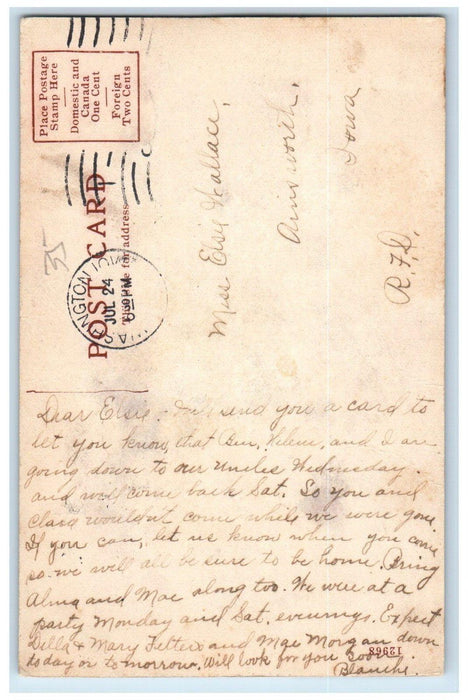 Place Postage
Stamp Here
Domestic and
Canada
One Cent
Foreign
Two Cents
POST CARD
This side for address
WASHINGTON, IOWA
JUL 24
6-30 PM
35
Miss Elsie Wallace,
Ainsworth.
Iowa
R.F.D.
Dear Elsie:- send you a card to
let you know that Ben, Helene, and I are
going down to our Uncles Wednesday.
and will come back Sat. So you and
Clara wouldn't come while we were gone.
If you can, let us know when you come
so we will all be sure to be home. Bring
Alma and Mae along too. We were at a
party Monday and Sat. evenings. Expect
Della & Mary Fetters and Mae Morgan down
today or tomorrow. Will look for you soon
Blanche.
12968